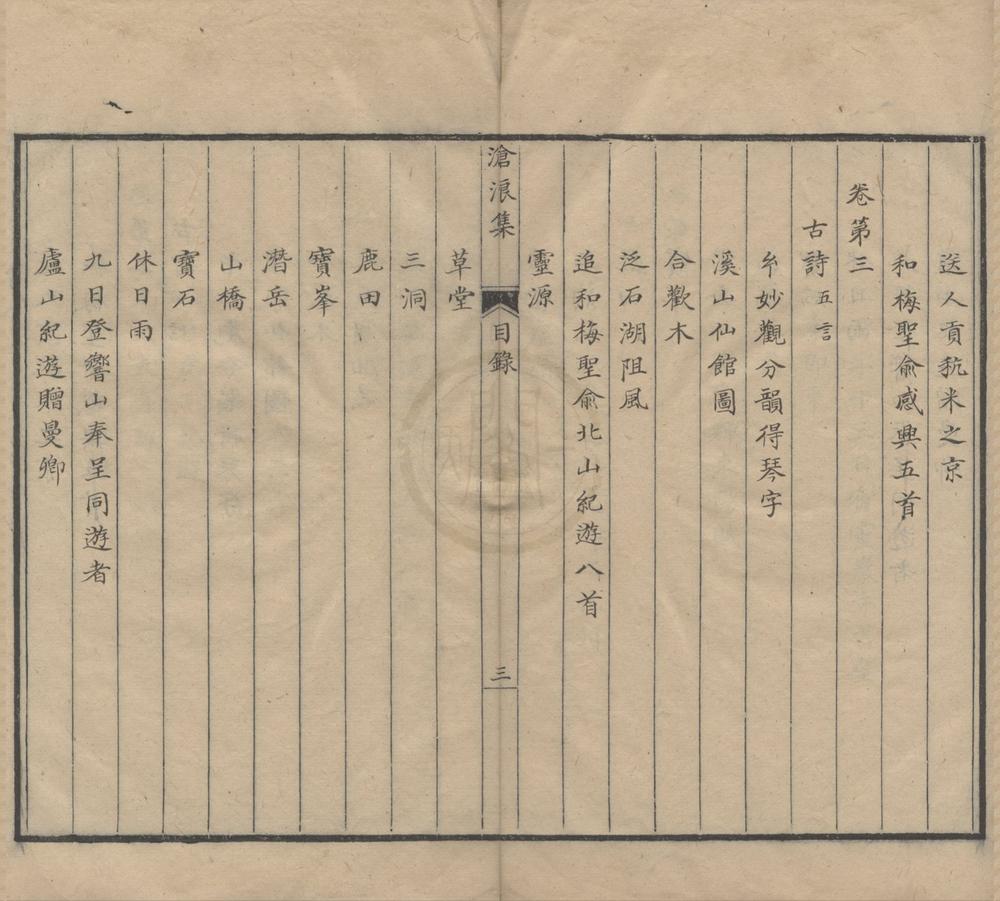 送人貢秔米之京
和梅聖俞感興五首
卷第三
古詩五言
糸妙觀分韻得琴字
溪山仙館圖
合歡木
泛石湖阻風
追和梅聖俞北山紀遊八首
靈源
滄浪集
目錄
三
草堂
三洞
鹿田
寶峯
潛岳
山橋
寶石
休日雨
九日登響山奉呈同遊者
廬山紀遊贈曼卿